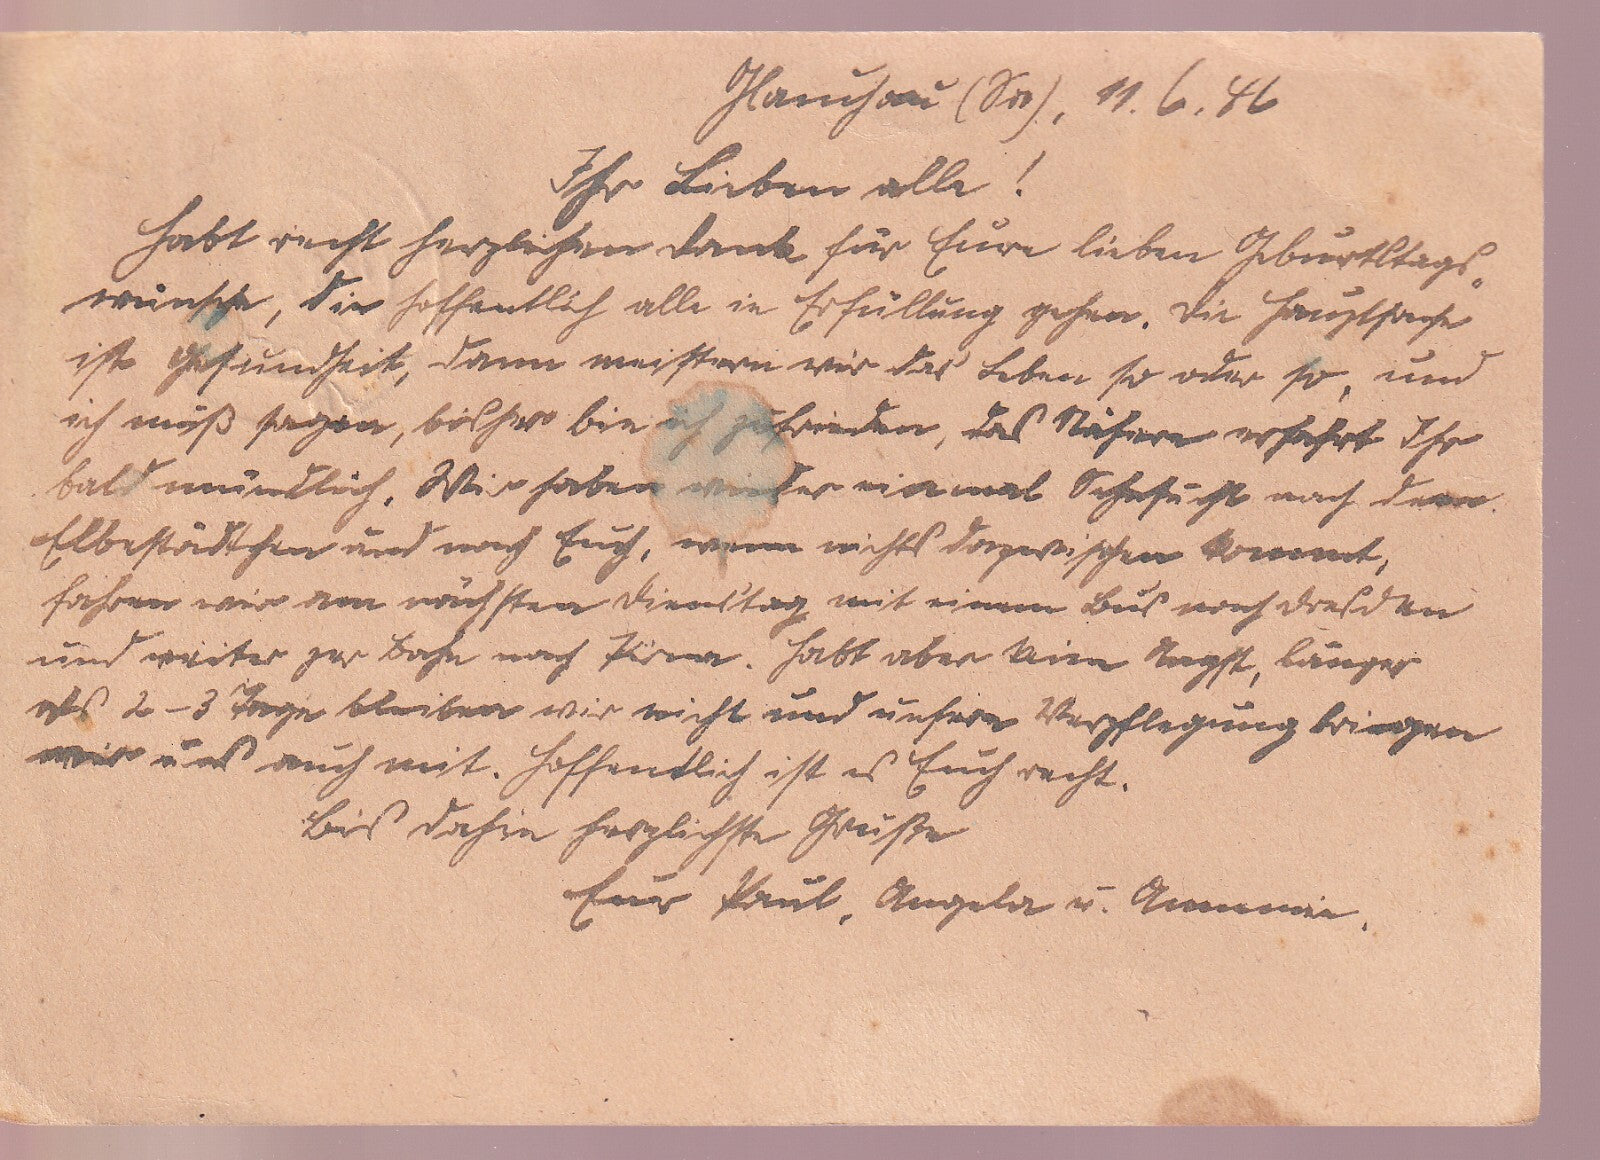 Glauchau (Sa), 11. 6. 46
Ihr Lieben alle!
Habt recht herzlichen Dank für Eure lieben Geburtstags-
wünsche, die hoffentlich alle in Erfüllung gehen. Die Hauptsache
ist Gesundheit, dann meistern wir das Leben so oder so, und
ich muß sagen, bisher bin ich zufrieden, das Nähere erfahrt Ihr
bald mündlich. Wir haben wieder einmal Sehnsucht nach dem
Elbestädtchen und nach Euch, wenn nichts dazwischen kommt,
fahren wir am nächsten Dienstag mit einem Bus nach Dresden
und weiter per Bahn nach Pirna. Habt aber keine Angst, länger
als 2-3 Tage bleiben wir nicht und unsere Verpflegung bringen
wir uns auch mit. Hoffentlich ist es Euch recht.
Bis dahin herzlichste Grüße
Eure Paul, Angela u. Annemie.